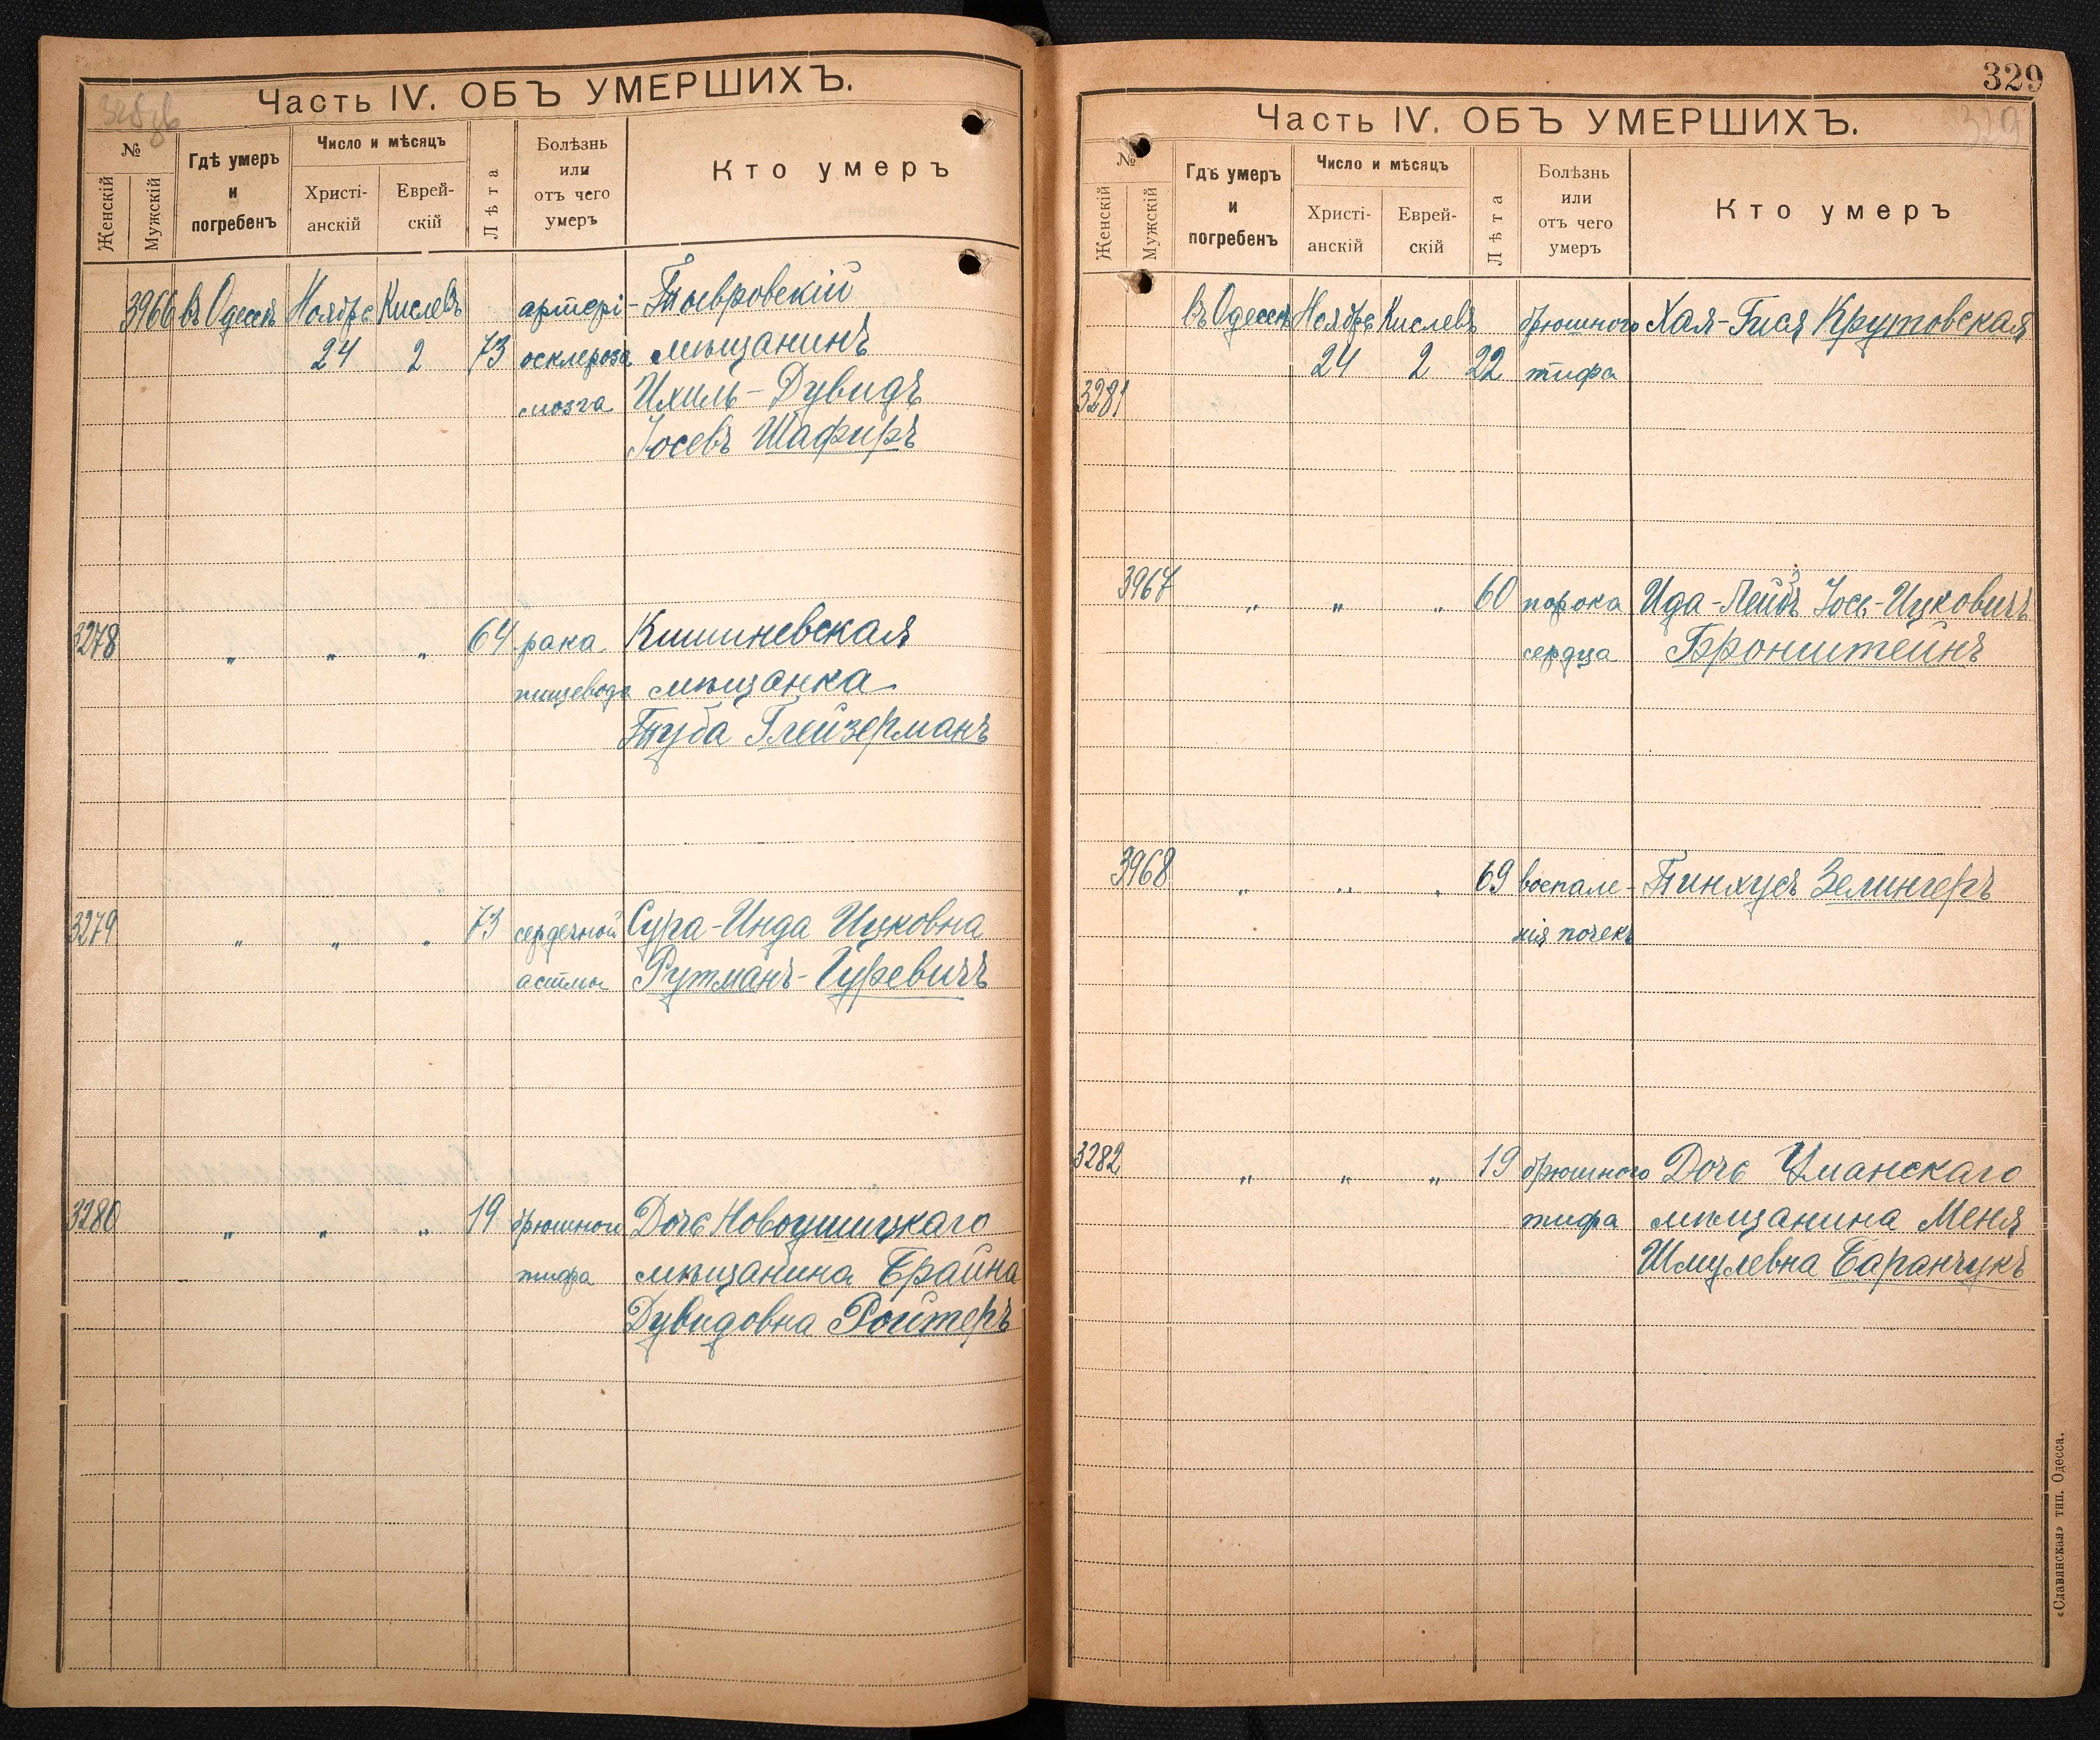 Часть IV. ОБЪ УМЕРШИХЪ.
№
Женскій
Мужскій
Гдѣ умеръ и погребенъ
Число и мѣсяцъ
Христіанскій
Еврейскій
Лѣта
Болѣзнь или отъ чего умеръ
Кто умеръ
3966 въ Одессѣ Ноября Кислевъ артері- Тывровскій
24 2 73 осклероза мѣщанинъ
мозга Ихиль-Дувидъ
Іосевъ Шафиръ
3278 „ „ „ 64 рака Кишиневская
пищевода мѣщанка
Туба Глейзерманъ
3279 „ „ „ 73 сердечной Сура-Инда Ицковна
астмы Рутманъ-Гуревичъ
3280 „ „ „ 19 брюшного Дочь Новоушицкаго
тифа мѣщанина Брайна
Дувидовна Ройтеръ
329
Часть IV. ОБЪ УМЕРШИХЪ.
329
№
Женскій
Мужскій
Гдѣ умеръ и погребенъ
Число и мѣсяцъ
Христіанскій
Еврейскій
Лѣта
Болѣзнь или отъ чего умеръ
Кто умеръ
въ Одессѣ Ноября Кислевъ брюшного Хая-Гися Крутовская
24 2 22 тифа
3281
3967 „ „ „ 60 порока Ида-Лейбъ Іось-Ицковичъ
сердца Бронштейнъ
3968 „ „ „ 69 воспале- Пинхусъ Зелингеръ
нія почекъ
3282 „ „ „ 19 брюшного Дочь Уманскаго
тифа мѣщанина Меня
Шмулевна Баранчукъ
«Славянская» тип. Одесса.